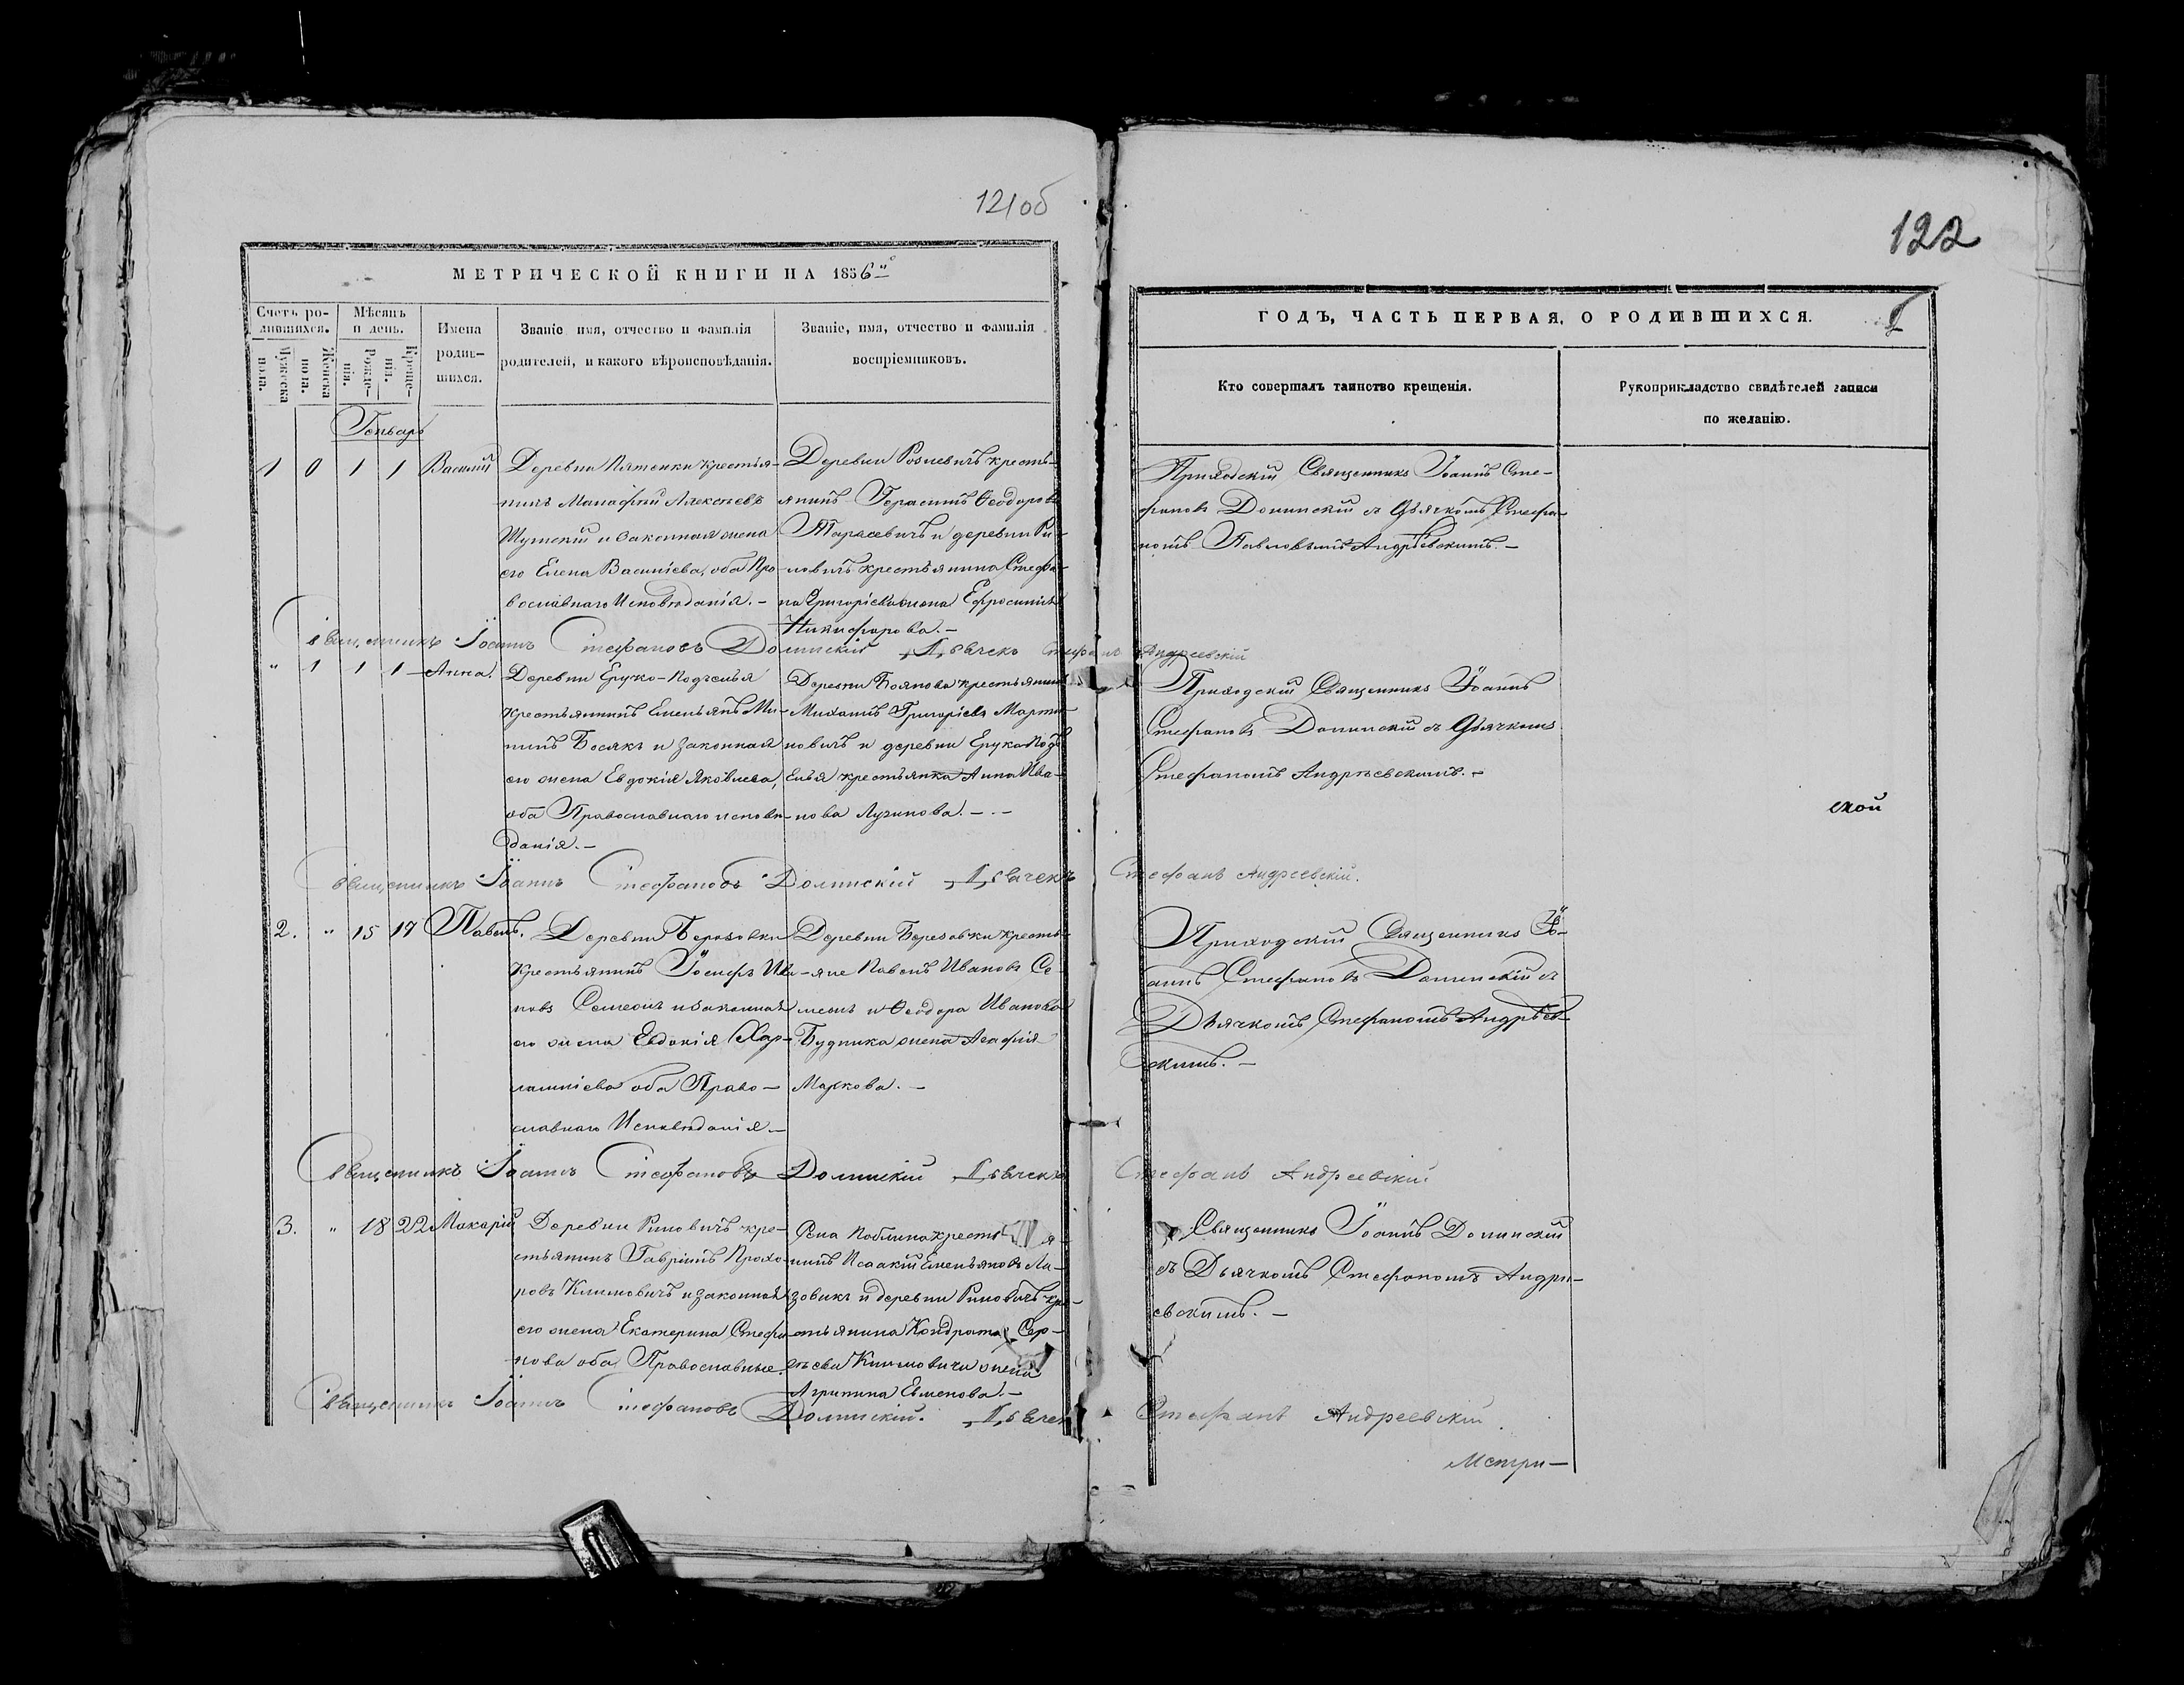 121об
МЕТРИЧЕСКОЙ КНИГИ НА 1856го
Счетъ ро-
дившихся.
Мужеска
пола.
Женска
пола.
Мѣсяцъ
и день.
Рожде-
нія.
Креще-
нія.
Имена
родив-
шихся.
Званіе имя, отчество и фамилія
родителей, и какого вѣроисповѣданія.
Званіе, имя, отчество и фамилія
воспріемниковъ.
Генварь
1 0 1 1 Василій
Деревни Пятенки крестья-
нинъ Малафѣй Алексѣевъ
Шумскій и законная жена
его Елена Василіева, оба Пра-
вославнаго Исповѣданія. –
Деревни Розлевичъ кресть-
янинъ Герасимъ Ѳеодоровъ
Тарасевичъ и деревни Ри-
мовичъ крестьянина Стефа-
на Григоріева жена Ефросинія
Никифорова. –
Священникъ Іоаннъ Стефановъ Долинскій Дьячекъ Стефанъ Андреевскій
" 1 1 1 Анна.
Деревни Ерухо-Подъелья
крестьянинъ Емельянъ Ми-
нинъ Босякъ и законная
его жена Евдокія Яковлева,
оба Православнаго исповѣ-
данія. –
Деревни Боянова крестьянинъ
Михаилъ Григоріевъ Марти-
новичъ и деревни Ерухо Подъ
Елья крестьянка Анна Ива-
нова Лузинова. – . –
Священникъ Іоаннъ Стефановъ Долинскій Дьячекъ Стефанъ Андреевскій.
2. " 15 17 Павелъ.
Деревни Березовки
Крестьянинъ Іосифъ Ива-
новъ Семеонъ и законная
его жена Евдокія Хар-
лампіева оба Право-
славнаго Исповѣданія. –
Деревни Березовки кресть-
яне Павелъ Ивановъ Се-
меонъ и Ѳеодора Иванова
Будника жена Агафія
Маркова. –
Священникъ Іоаннъ Стефановъ Долинскій Дьячекъ Стефанъ Андреевскій
3. " 18 22 Макарій
Деревни Римовичъ кре-
стьянинъ Гавріилъ Прохо-
ровъ Климовичъ и законная
его жена Екатерина Стефа-
нова оба Православные.
Села Коблина крестья
нинъ Исаакій Емельяновъ Ла-
зовикъ и деревни Римовичъ кре-
стьянина Кондрата Сер-
гѣева Климовича жена
Агрипина Евменова. –
Священникъ Іоаннъ Стефановъ Долинскій. Дьячекъ Стефанъ Андреевскій.
122
ГОДЪ, ЧАСТЬ ПЕРВАЯ, О РОДИВШИХСЯ.
Кто совершалъ таинство крещенія.
Рукоприкладство свидѣтелей записи
по желанію.
Приходскій Священникъ Іоаннъ Сте-
фановъ Долинскій съ Дьячкомъ Стефа-
номъ Павловымъ Андрѣевскимъ. –
Приходскій Священникъ Іоаннъ
Стефановъ Долинскій съ Дьячкомъ
Стефаномъ Андрѣевскимъ. –
ской
Приходскій Священникъ Іо-
аннъ Стефановъ Долинскій съ
Дьячкомъ Стефаномъ Андрѣев-
скимъ. –
Священникъ Іоаннъ Долинскій
съ Дьячкомъ Стефаномъ Андрѣ-
евскимъ. –
Метри-